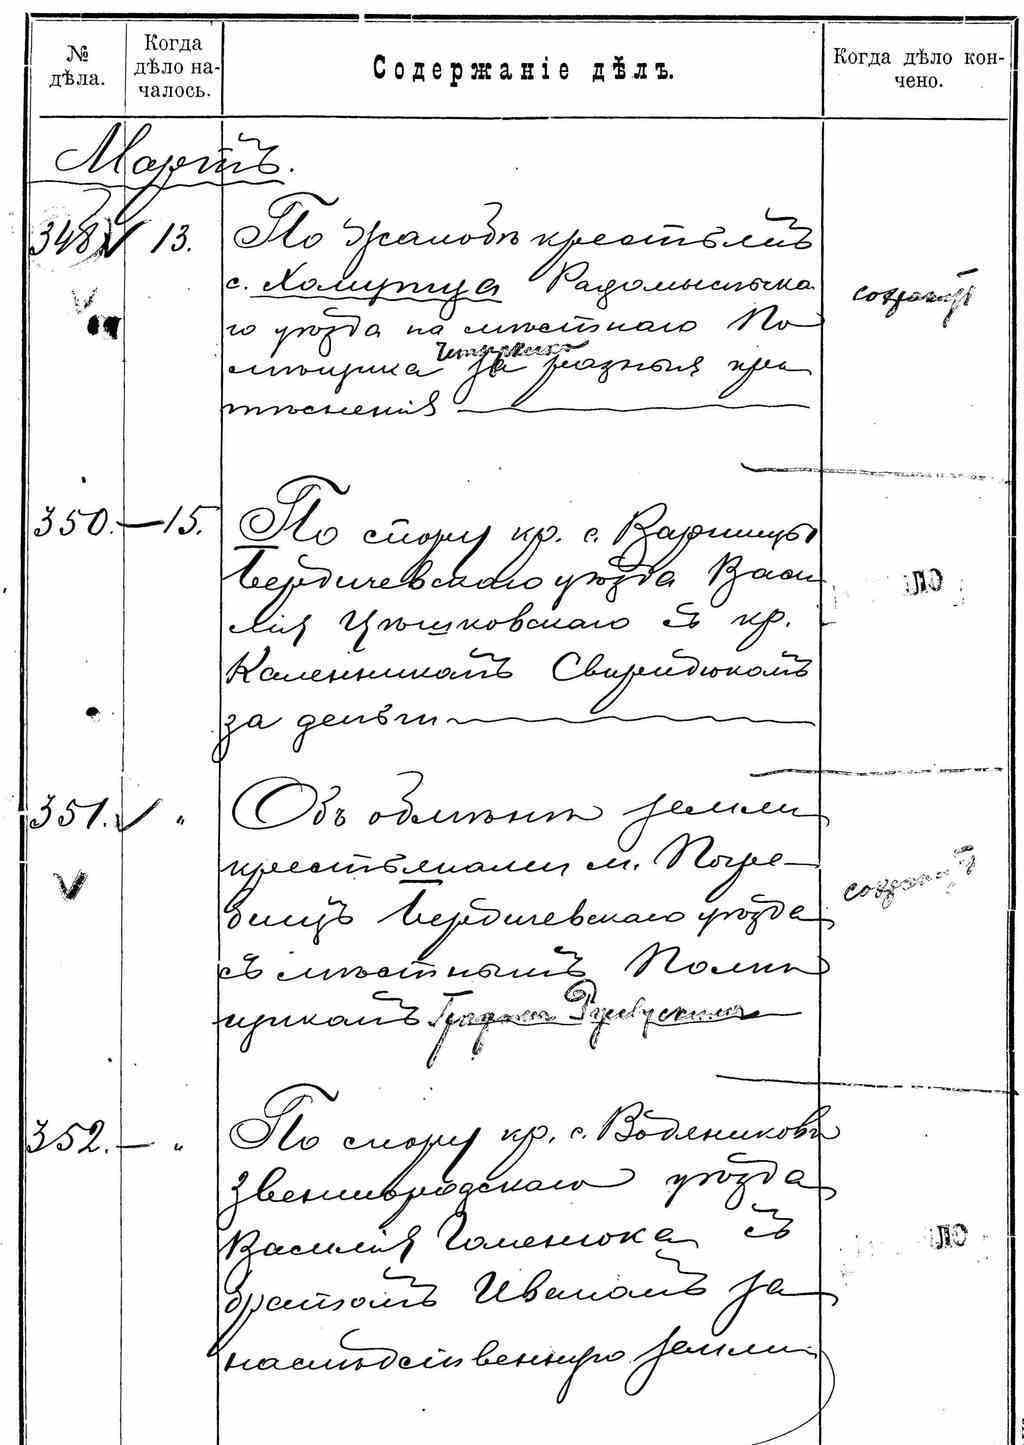 № дѣла.
Когда дѣло на-
чалось.
Содержаніе дѣлъ.
Когда дѣло кон-
чено.
Мартъ.
348 13. По жалобѣ крестьянъ
с. Хомутца Радомысльска
го уѣзда на мѣстнаго По
мѣщика за разныя при
тѣсненія
сохранить
350. — 15. По спору кр. с. Варшицы
Бердичевскаго уѣзда Васи
лія Цѣшковскаго съ кр.
Каленникомъ Свиридюкомъ
за деньги
ло
351. " Объ обмѣнѣ земли
крестьянами м. Погре-
бищъ Бердичевскаго уѣзда
съ мѣстнымъ Помѣ
щикомъ Графомъ Ржевускимъ
сохранить
352. — " По спору кр. с. Водяниковъ
Звенигородскаго уѣзда
Василія Гоменюка съ
братомъ Иваномъ за
наслѣдственную землю
ло